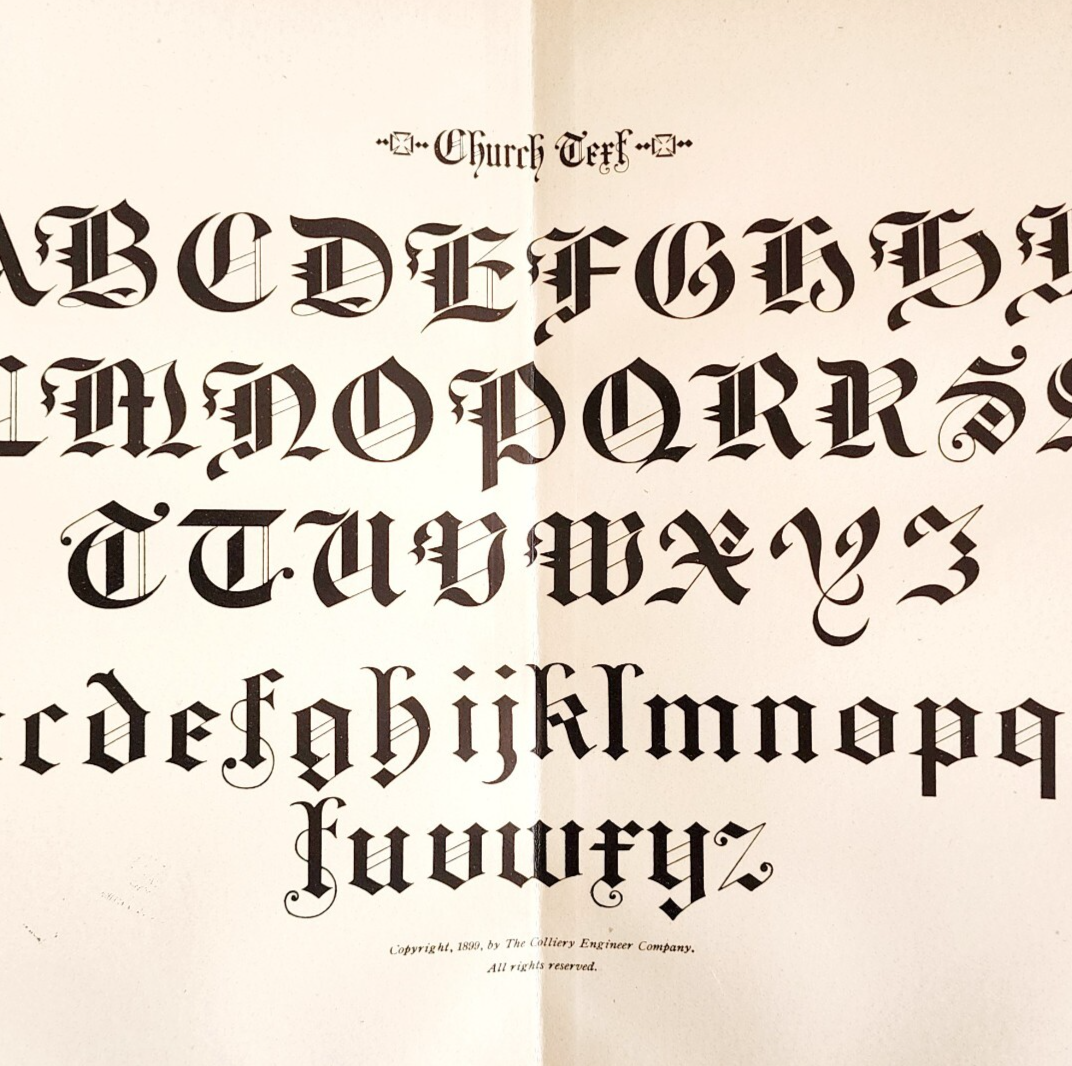 Church Text
A B C D E F G H H
L M N O P Q R R S S
T T U V W X Y Z
c d e f g h i j k l m n o p q
t u v w x y z
Copyright, 1899, by The Colliery Engineer Company.
All rights reserved.